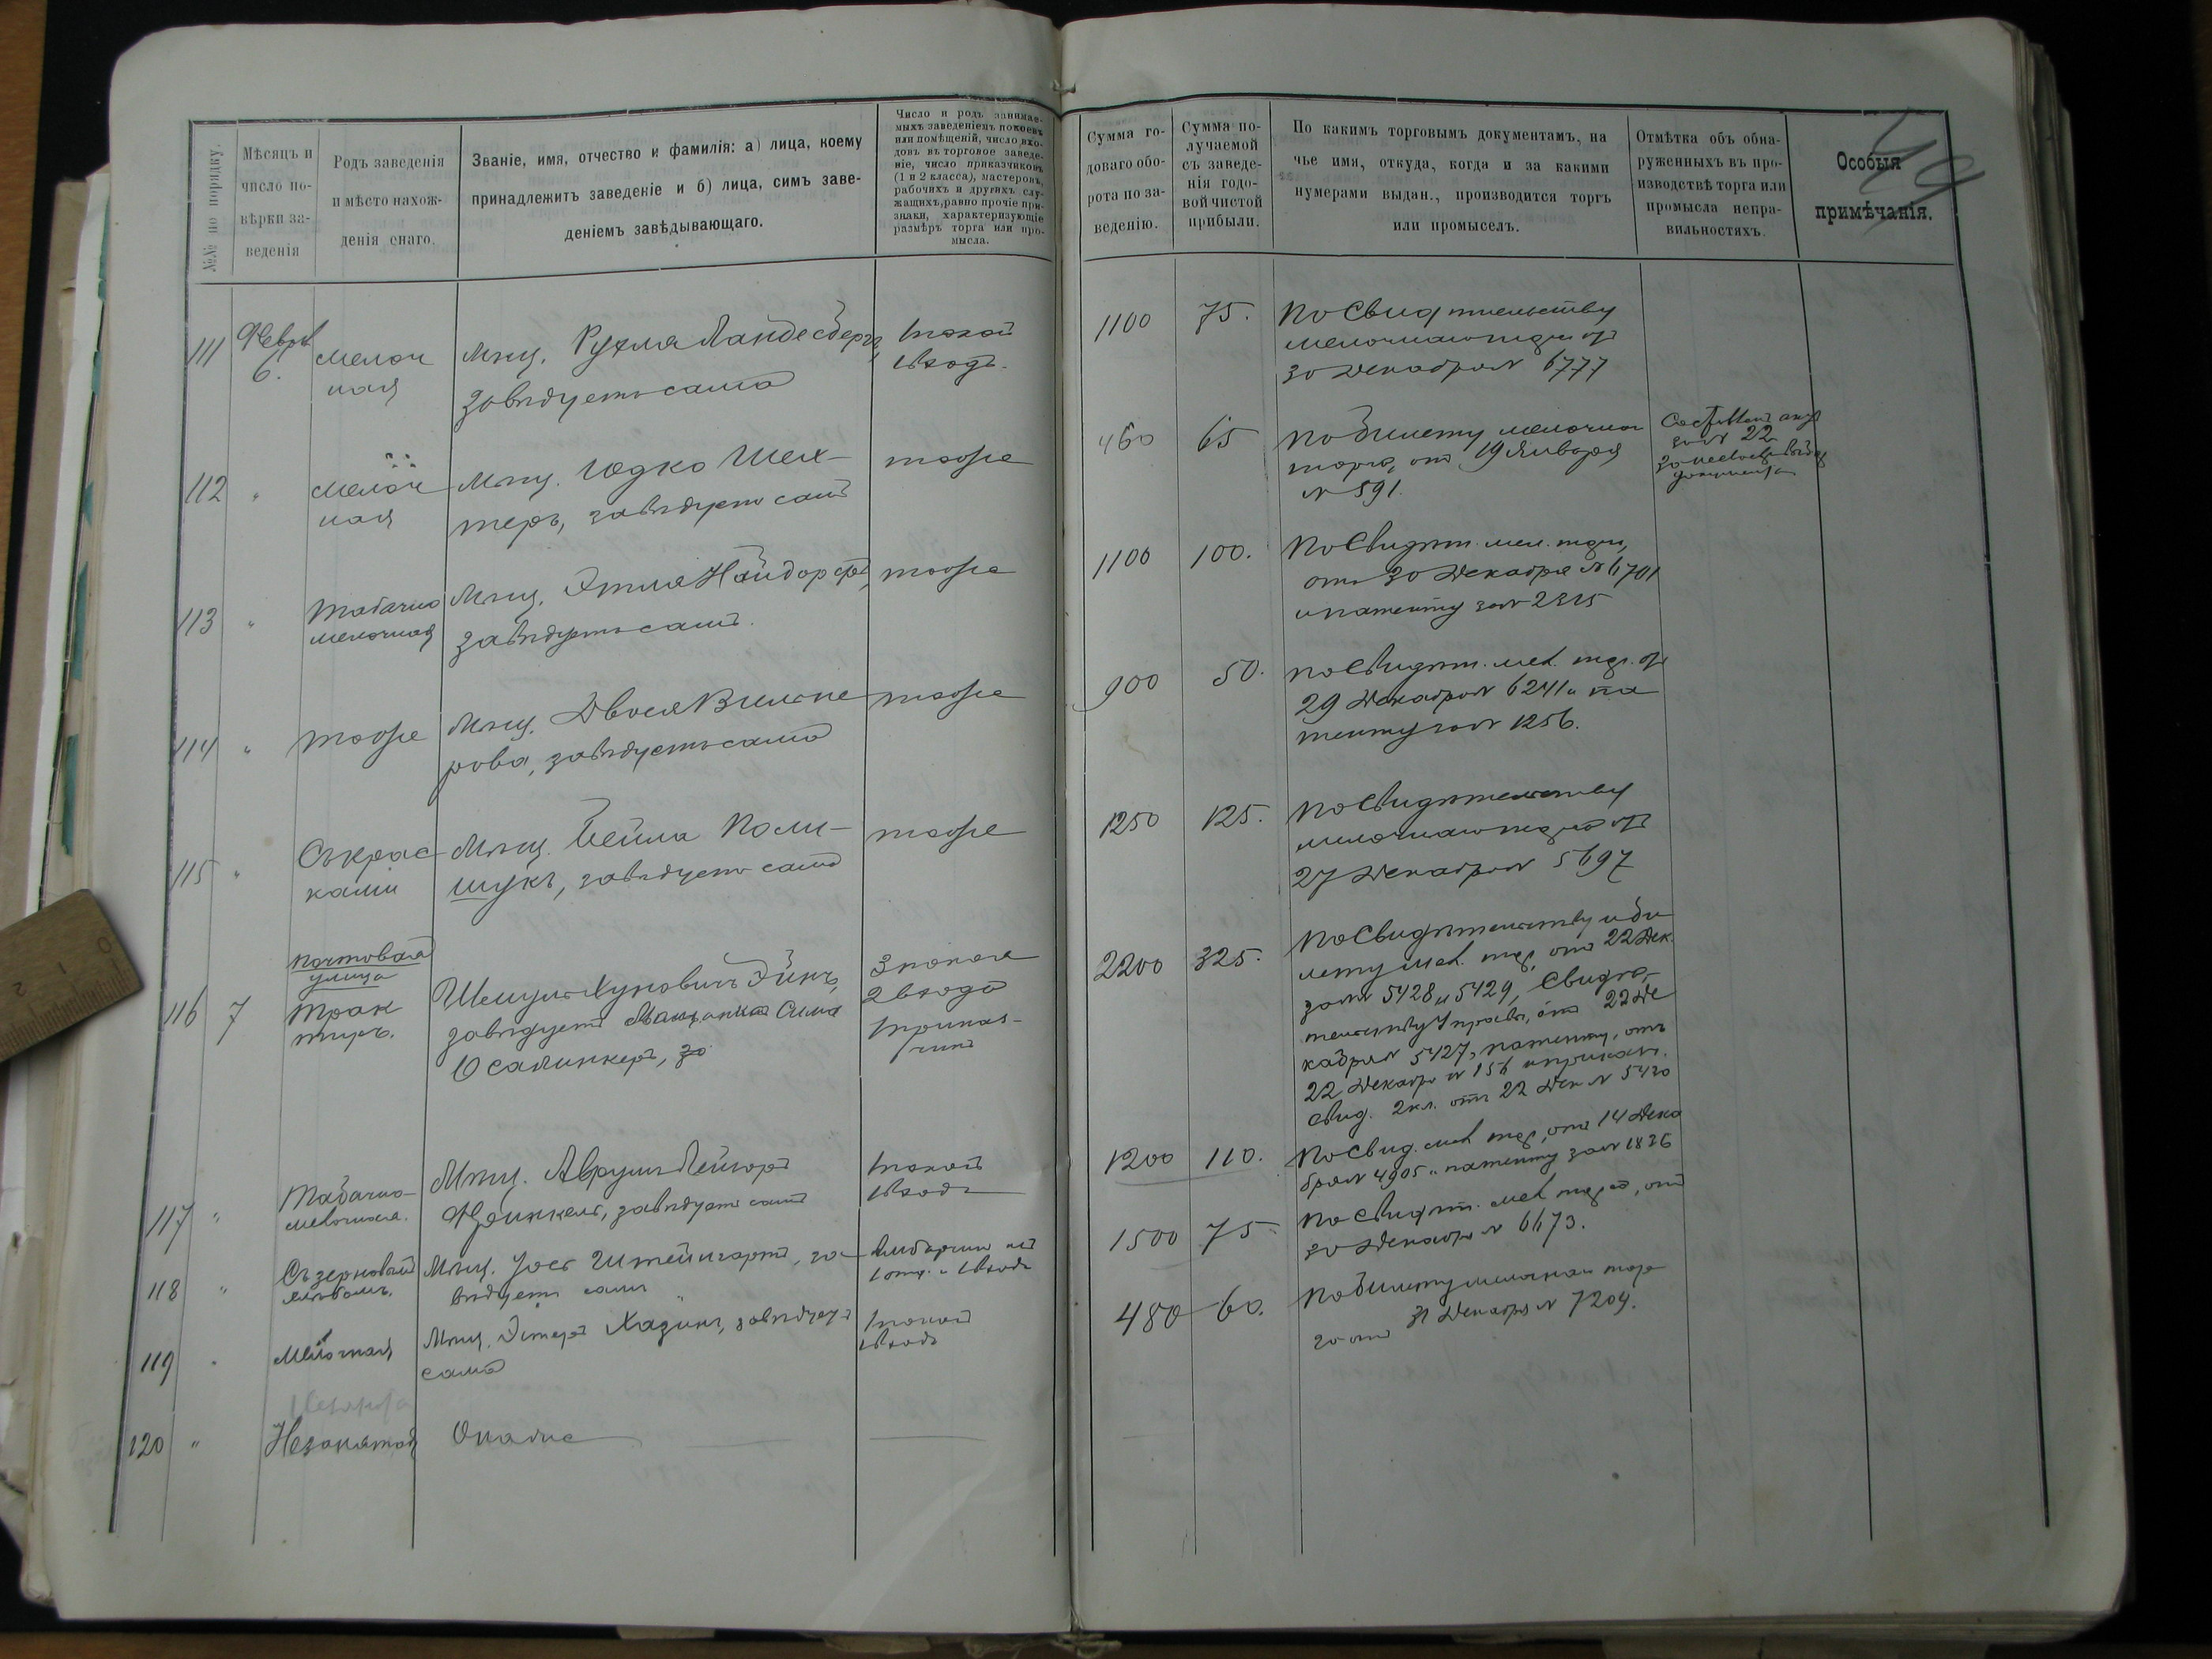 №№ по порядку.
Мѣсяцъ и
число по-
вѣрки за-
веденія
Родъ заведенія
и мѣсто нахож-
денія онаго.
Званіе, имя, отчество и фамилія: а) лица, коему
принадлежитъ заведеніе и б) лица, симъ заве-
деніемъ завѣдывающаго.
Число и родъ занимае-
мыхъ заведеніемъ покоевъ
или помѣщеній, число вхо-
довъ въ торговое заведе-
ніе, число приказчиковъ
(1 и 2 класса), мастеровъ,
рабочихъ и другихъ слу-
жащихъ, равно прочіе при-
знаки, характеризующіе
размѣръ торга или про-
мысла.
Сумма го-
доваго обо-
рота по за-
веденію.
Сумма по-
лучаемой
съ заведе-
нія годо-
вой чистой
прибыли.
По какимъ торговымъ документамъ, на
чье имя, откуда, когда и за какими
нумерами выдан., производится торгъ
или промыселъ.
Отмѣтка объ обна-
руженныхъ въ про-
изводствѣ торга или
промысла непра-
вильностяхъ.
Особыя
примѣчанія.
111
Февр.
6.
мелоч
ная
Мѣщ. Рухля Ландесбергъ,
завѣдуетъ сама
1 покой
1 входъ.
1100
75.
По Свидѣтельству
30 Декабря № 6777
112 "
мелоч
ная
Мѣщ. Юдко Шех-
теръ, завѣдуетъ самъ
тоже
460
65
По билету мелочнаго
торга, отъ 19 Января
№ 591.
за № 22
документа
113 "
Табачно
мелочная
Мѣщ. Этля Найдорфъ,
завѣдуетъ самъ.
тоже
1100
100.
По Свидѣт. мел. торга,
отъ 30 Декабря № 6701
и патенту за № 2315
114 "
тоже
Мѣщ. Двося Вильне
рова, завѣдуетъ сама
тоже
900
50.
По Свидѣт. мел. торг. отъ
29 Декабря № 6241 и па
тенту за № 1256.
115 "
Съ крас
ками
Мѣщ. Бейла Поли-
щукъ, завѣдуетъ сама
тоже
1250
125.
По Свидѣтельству
мелочнаго торга отъ
27 Декабря № 5697
116
7
Почтовая
улица
Трак
тиръ.
Шемуль Хуновичъ Эйнъ,
завѣдуетъ Мѣщанка Сима
Осалинкеръ, за
3 покоя
2 входа
1 приказ-
чикъ
2200
325.
По Свидѣтельству и би
лету мел. тор, отъ 22 Дек.
за № 5428 и 5429, Свидѣ-
тельству Управы, отъ 22 Де
кабря № 5427, патенту, отъ
22 Декабр № 156 и приказч.
свид. 2 кл. отъ 22 Дек № 5430
117 "
Табачно-
мелочная.
Мѣщ. Аврумъ Лейзоръ
Френкель, завѣдуетъ самъ
1 покой
1 входъ
1200
110.
По Свид. мел тор, отъ 14 Дека
бря № 4905 и патенту за № 1836
118 "
Съ зерновымъ
хлѣбомъ.
Мѣщ. Іось Штейнгартъ, за-
вѣдуетъ самъ
1500
75
По Свидѣт. мел торга, отъ
30 Декабря № 6673.
119 "
Мелочная
Мѣщ. Эстеръ Хазинъ, завѣдуетъ
сама
1 покой
1 входъ
480
60.
По билету мелочнаго тор
га отъ 31 Декабря № 7209.
120 "
Незанятая